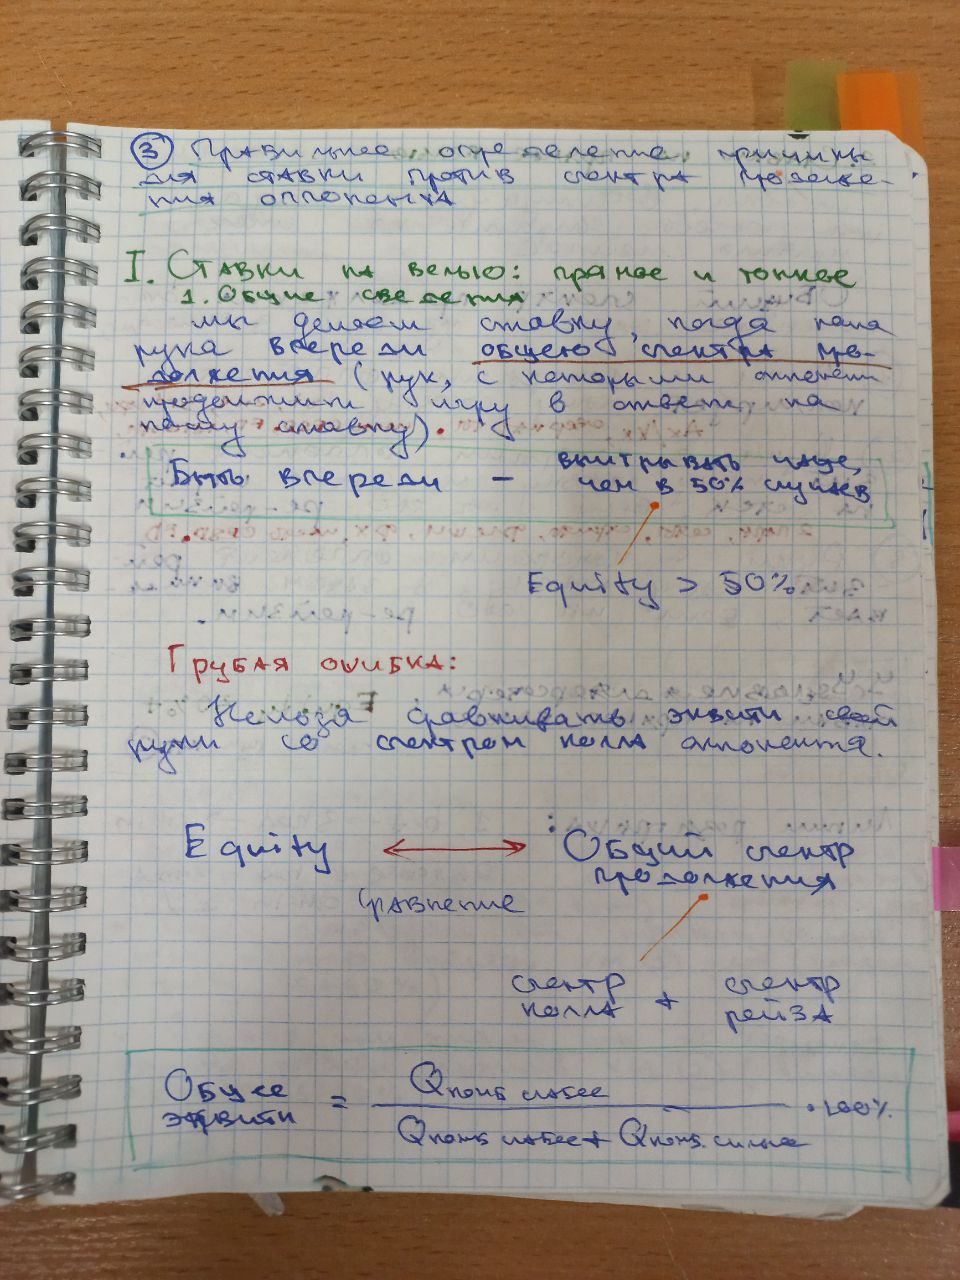 ③ Правильное определение причины
для ставки против спектра продолже-
ния оппонента
I. Ставки на велью: прямое и тонкое
1. Общие сведения
Мы делаем ставку, когда наша
рука впереди общего спектра про-
должения (рук, с которыми оппонент
продолжит игру в ответ на
нашу ставку).
Быть впереди – выигрывать чаще,
чем в 50% случаев
Equity > 50%
Грубая ошибка:
Нельзя сравнивать эквити своей
руки со спектром колла оппонента.
Equity ⟷ Общий спектр
продолжения
Сравнение
спектр колла + спектр рейза
Общее эквити = Qкомб слабее / (Qкомб слабее + Qкомб. сильнее) · 100%